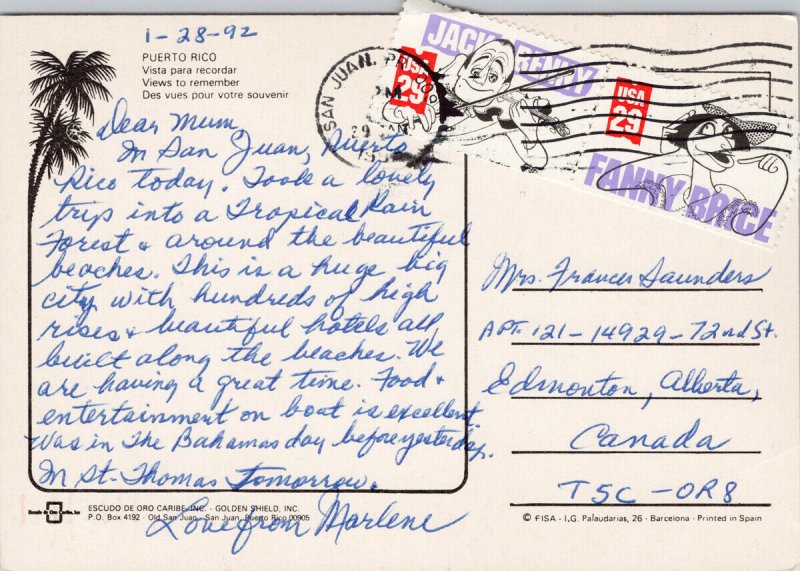 1-28-92
PUERTO RICO
Vista para recordar
Views to remember
Des vues pour votre souvenir
Dear Mum,
In San Juan, Puerto
Rico today. Took a lovely
trip into a Tropical Rain
Forest & around the beautiful
beaches. This is a huge big
city with hundreds of high
rises & beautiful hotels all
built along the beaches. We
are having a great time. Food &
entertainment on boat is excellent.
Was in The Bahamas day before yesterday.
In St. Thomas tomorrow.
Love from Marlene
ESCUDO DE ORO CARIBE, INC. - GOLDEN SHIELD, INC.
P.O. Box 4192 - Old San Juan - San Juan, Puerto Rico 00905
Escudo de Oro Caribe, Inc
SAN JUAN, PR
JACK BENNY
USA
29
USA
29
FANNY BRICE
Mrs. Frances Saunders
APT. 121-14929-72nd St.
Edmonton, Alberta,
Canada
T5C-0R8
© FISA - I.G. Palaudarias, 26 - Barcelona - Printed in Spain